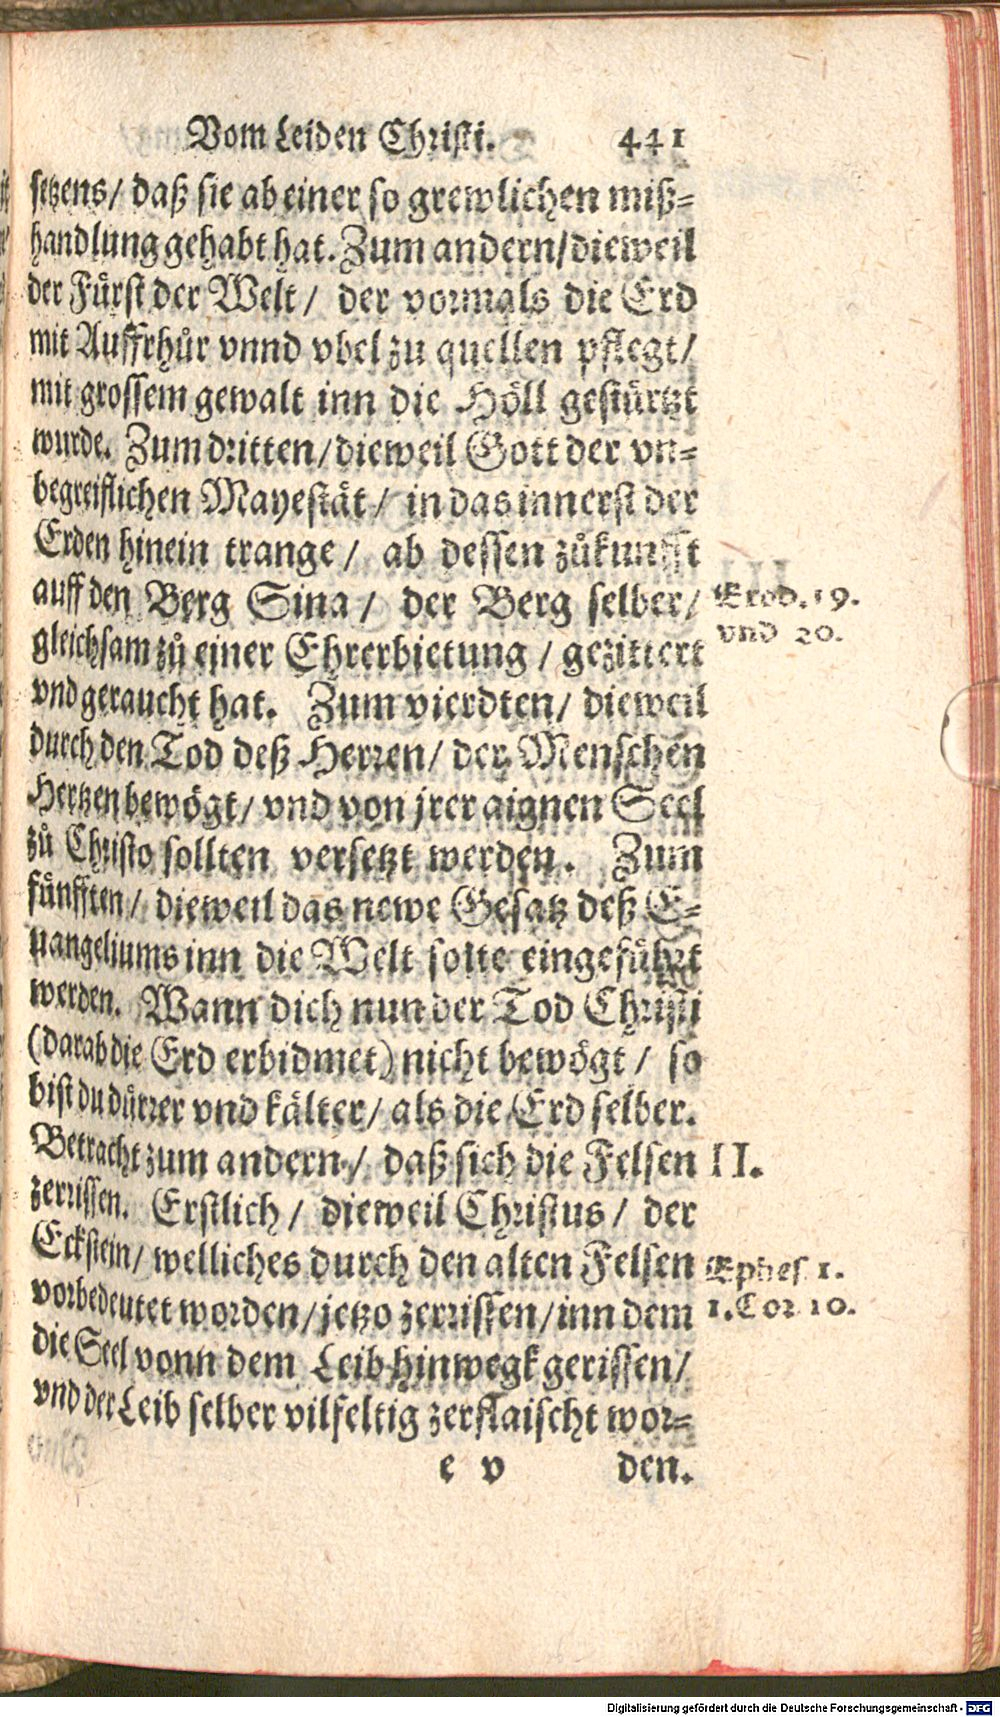 Vom Leiden Christi. 441
setzens/ daß sie ab einer so grewlichen miß-
handlung gehabt hat. Zum andern/ dieweil
der Fürst der Welt/ der vormals die Erd
mit Auffrhůr vnnd vbel zu quellen pflegt/
mit grossem gewalt inn die Höll gestürtzt
wurde. Zum dritten/ dieweil Gott der vn-
begreiflichen Mayestät/ in das innerst der
Erden hinein trange/ ab dessen zůkunfft
auff den Berg Sina/ der Berg selber/
Exod. 19.
vnd 20.
gleichsam zů einer Ehrerbietung/ gezittert
vnd geraucht hat. Zum vierdten/ dieweil
durch den Tod deß Herren/ der Menschen
Hertzen bewögt/ vnd von jrer aignen Seel
zů Christo sollten versetzt werden. Zum
fünfften/ dieweil das newe Gesatz deß E-
uangeliums inn die Welt solte eingeführt
werden. Wann dich nun der Tod Christi
(darab die Erd erbidmet) nicht bewögt/ so
bist du dürrer vnd kälter/ als die Erd selber.
Betracht zum andern/ daß sich die Felsen
II.
zerrissen. Erstlich/ dieweil Christus/ der
Eckstein/ welliches durch den alten Felsen
Ephes 1.
vorbedeutet worden/ jetzo zerrissen/ inn dem
1. Cor 10.
die Seel vonn dem Leib hinwegk gerissen/
vnd der Leib selber vilfeltig zerflaischt wor-
e v den.
Digitalisierung gefördert durch die Deutsche Forschungsgemeinschaft - DFG